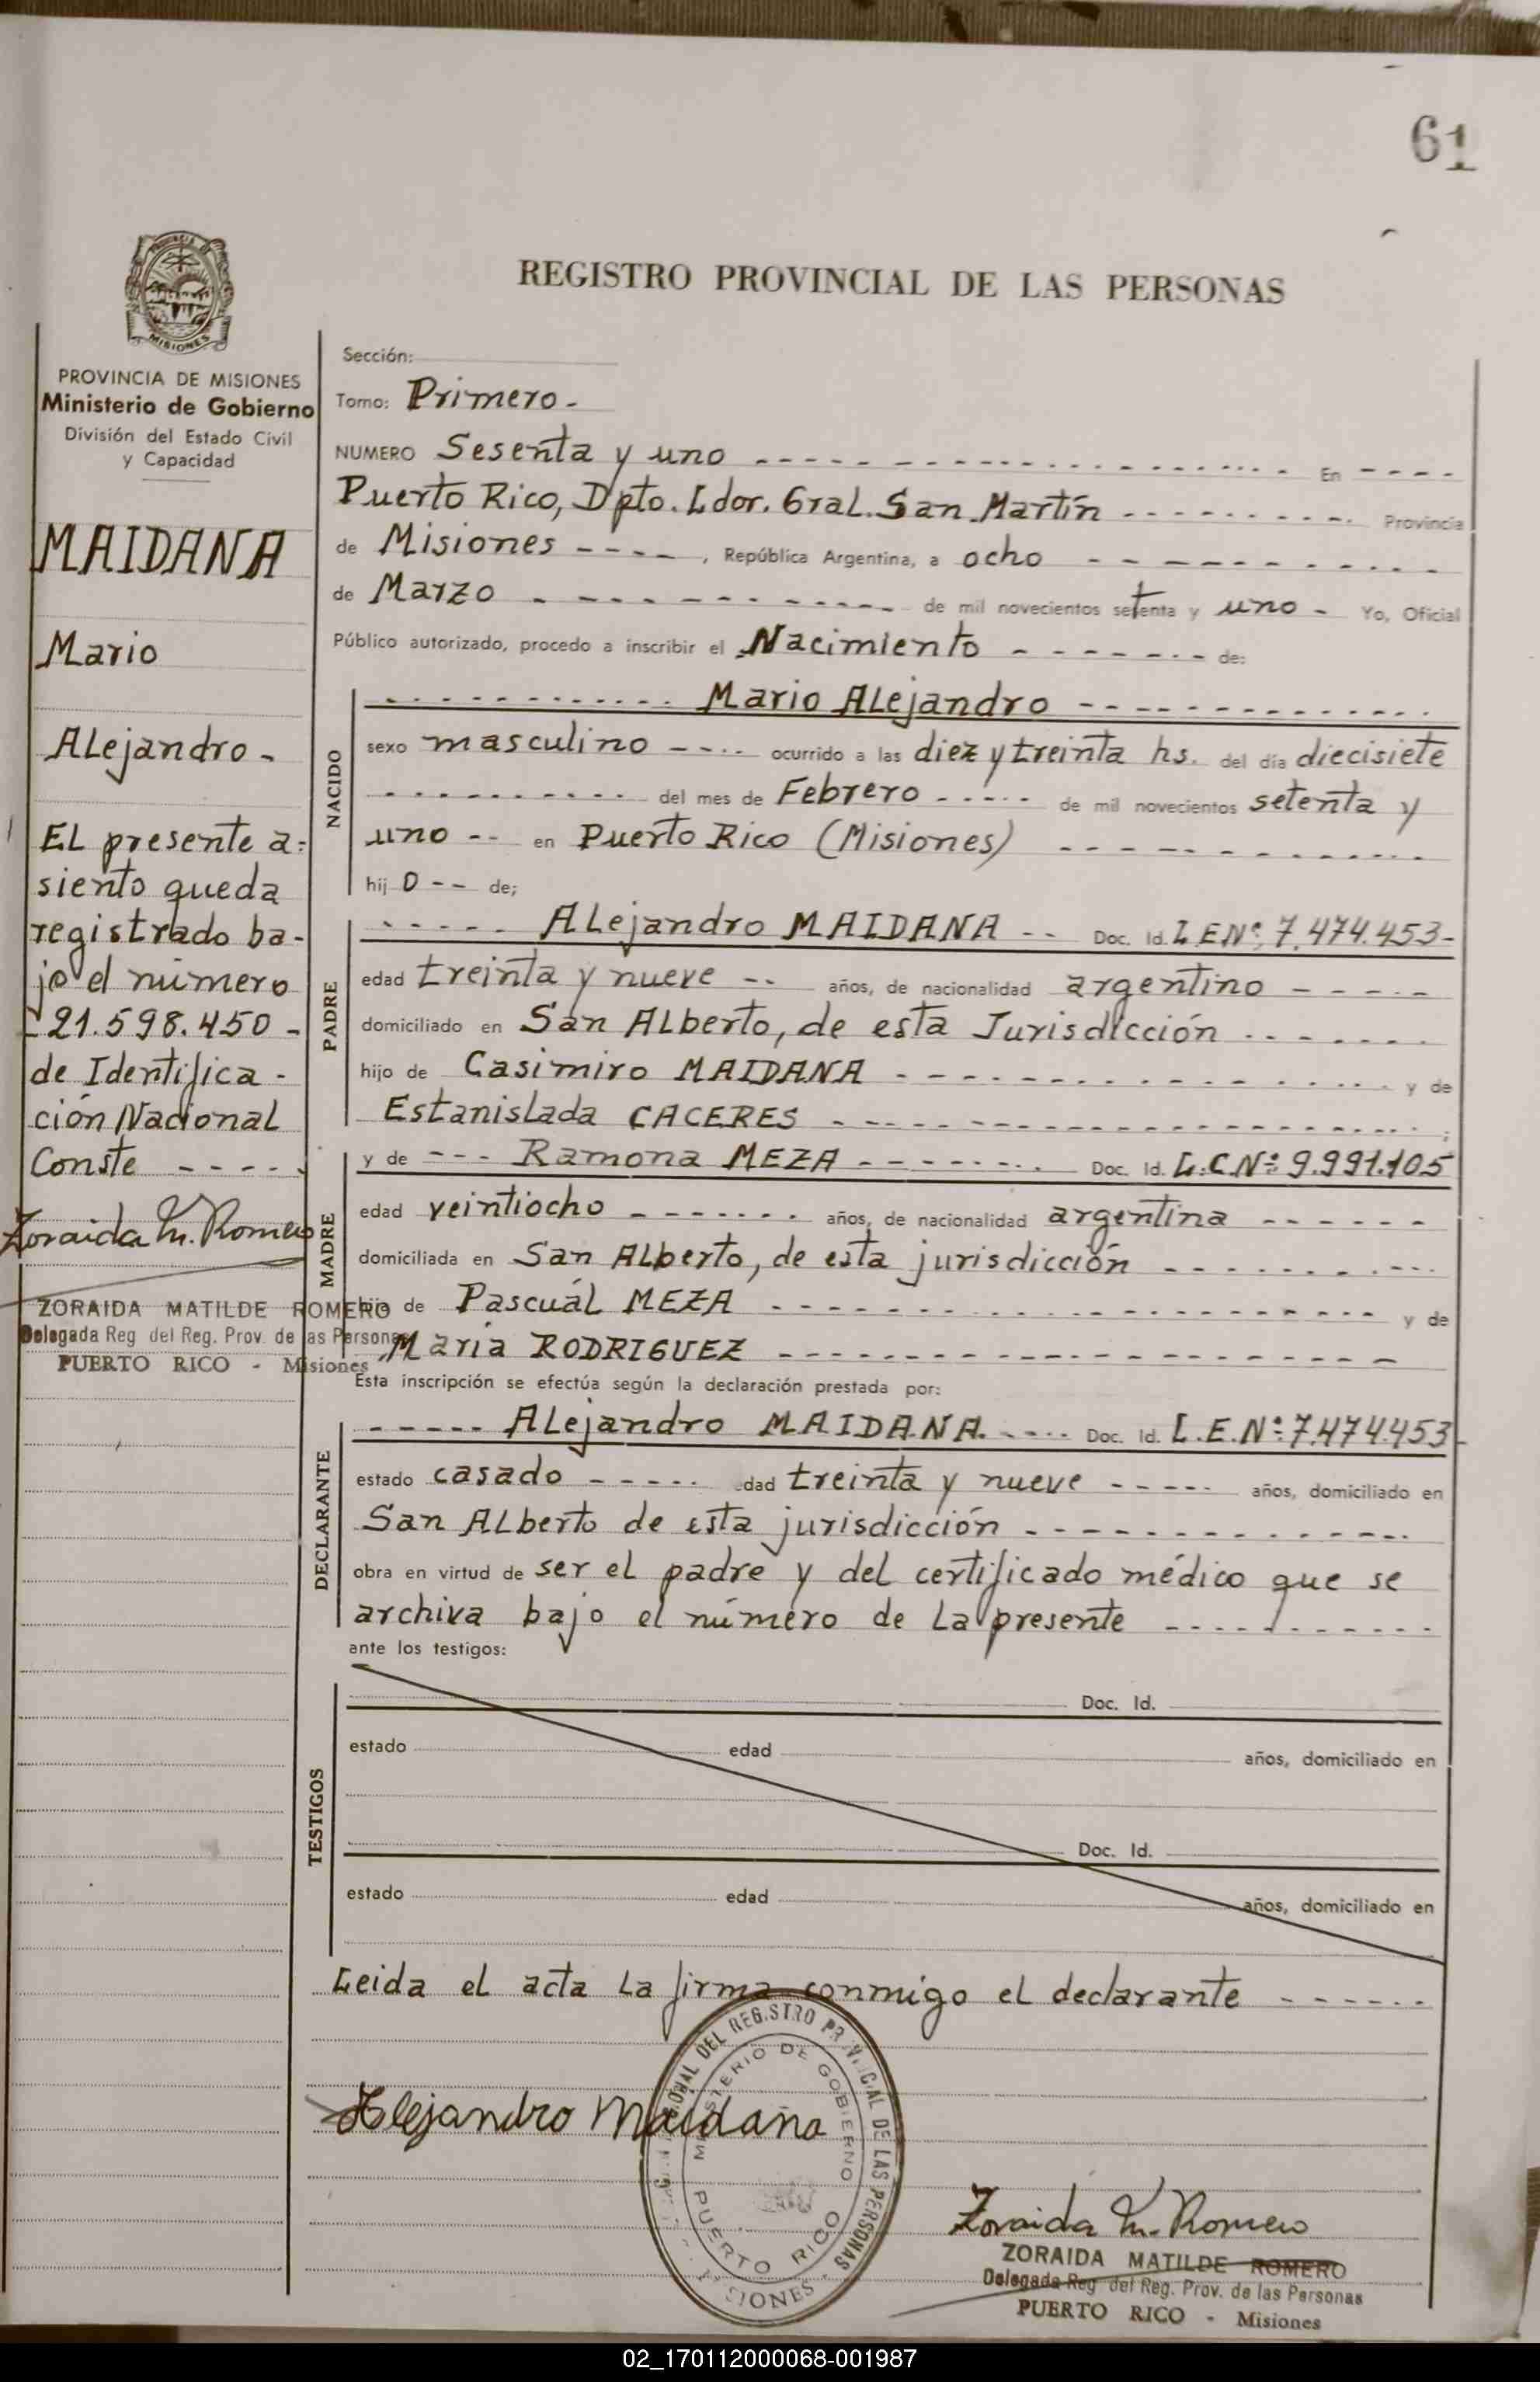 61
REGISTRO PROVINCIAL DE LAS PERSONAS
MISIONES
PROVINCIA DE MISIONES
Ministerio de Gobierno
División del Estado Civil
y Capacidad
MAIDANA
Mario
Alejandro -
El presente a=
siento queda
registrado ba-
jo el número
-21.598.450-
de Identifica-
ción Nacional
Conste - - - -
Zoraida M. Romero
ZORAIDA MATILDE ROMERO
Delegada Reg del Reg. Prov. de las Personas
PUERTO RICO - Misiones
Sección:
Tomo: Primero -
NUMERO Sesenta y uno - - - - En - - - -
Puerto Rico, Dpto. Ldor. Gral. San Martín - - - - Provincia
de Misiones - - - - , República Argentina, a ocho - - - -
de Marzo - - - - de mil novecientos setenta y uno - Yo, Oficial
Público autorizado, procedo a inscribir el Nacimiento - - - - de:
NACIDO
- - - - Mario Alejandro - - - -
sexo masculino - - - - ocurrido a las diez y treinta hs. del día diecisiete
- - - - del mes de Febrero - - - - de mil novecientos setenta y
uno - - en Puerto Rico (Misiones) - - - -
hij o - - de;
PADRE
- - - - Alejandro MAIDANA - - Doc. Id. L.E.Nº: 7.474.453-
edad treinta y nueve - - años, de nacionalidad argentino - - - -
domiciliado en San Alberto, de esta Jurisdicción - - - -
hijo de Casimiro MAIDANA - - - - y de
Estanislada CACERES - - - - ;
MADRE
y de - - - Ramona MEZA - - - - Doc. Id. L.C.Nº: 9.991.105
edad veintiocho - - - - años, de nacionalidad argentina - - - -
domiciliada en San Alberto, de esta jurisdicción - - - -
hija de Pascuál MEZA - - - - y de
María RODRIGUEZ - - - -
Esta inscripción se efectúa según la declaración prestada por:
DECLARANTE
- - - - Alejandro MAIDANA. - - - - Doc. Id. L.E.Nº: 7.474.453-
estado casado - - - - edad treinta y nueve - - - - años, domiciliado en
San Alberto de esta jurisdicción - - - -
obra en virtud de ser el padre y del certificado médico que se
archiva bajo el número de la presente - - - -
ante los testigos:
TESTIGOS
Doc. Id.
estado edad años, domiciliado en
Doc. Id.
estado edad años, domiciliado en
Leida el acta la firma conmigo el declarante - - - -
DEL REGISTRO PROVINCIAL DE LAS PERSONAS
MINISTERIO DE GOBIERNO
PUERTO RICO
MISIONES
Alejandro Maidana
Zoraida M. Romero
ZORAIDA MATILDE ROMERO
Delegada Reg del Reg. Prov. de las Personas
PUERTO RICO - Misiones
02_170112000068-001987